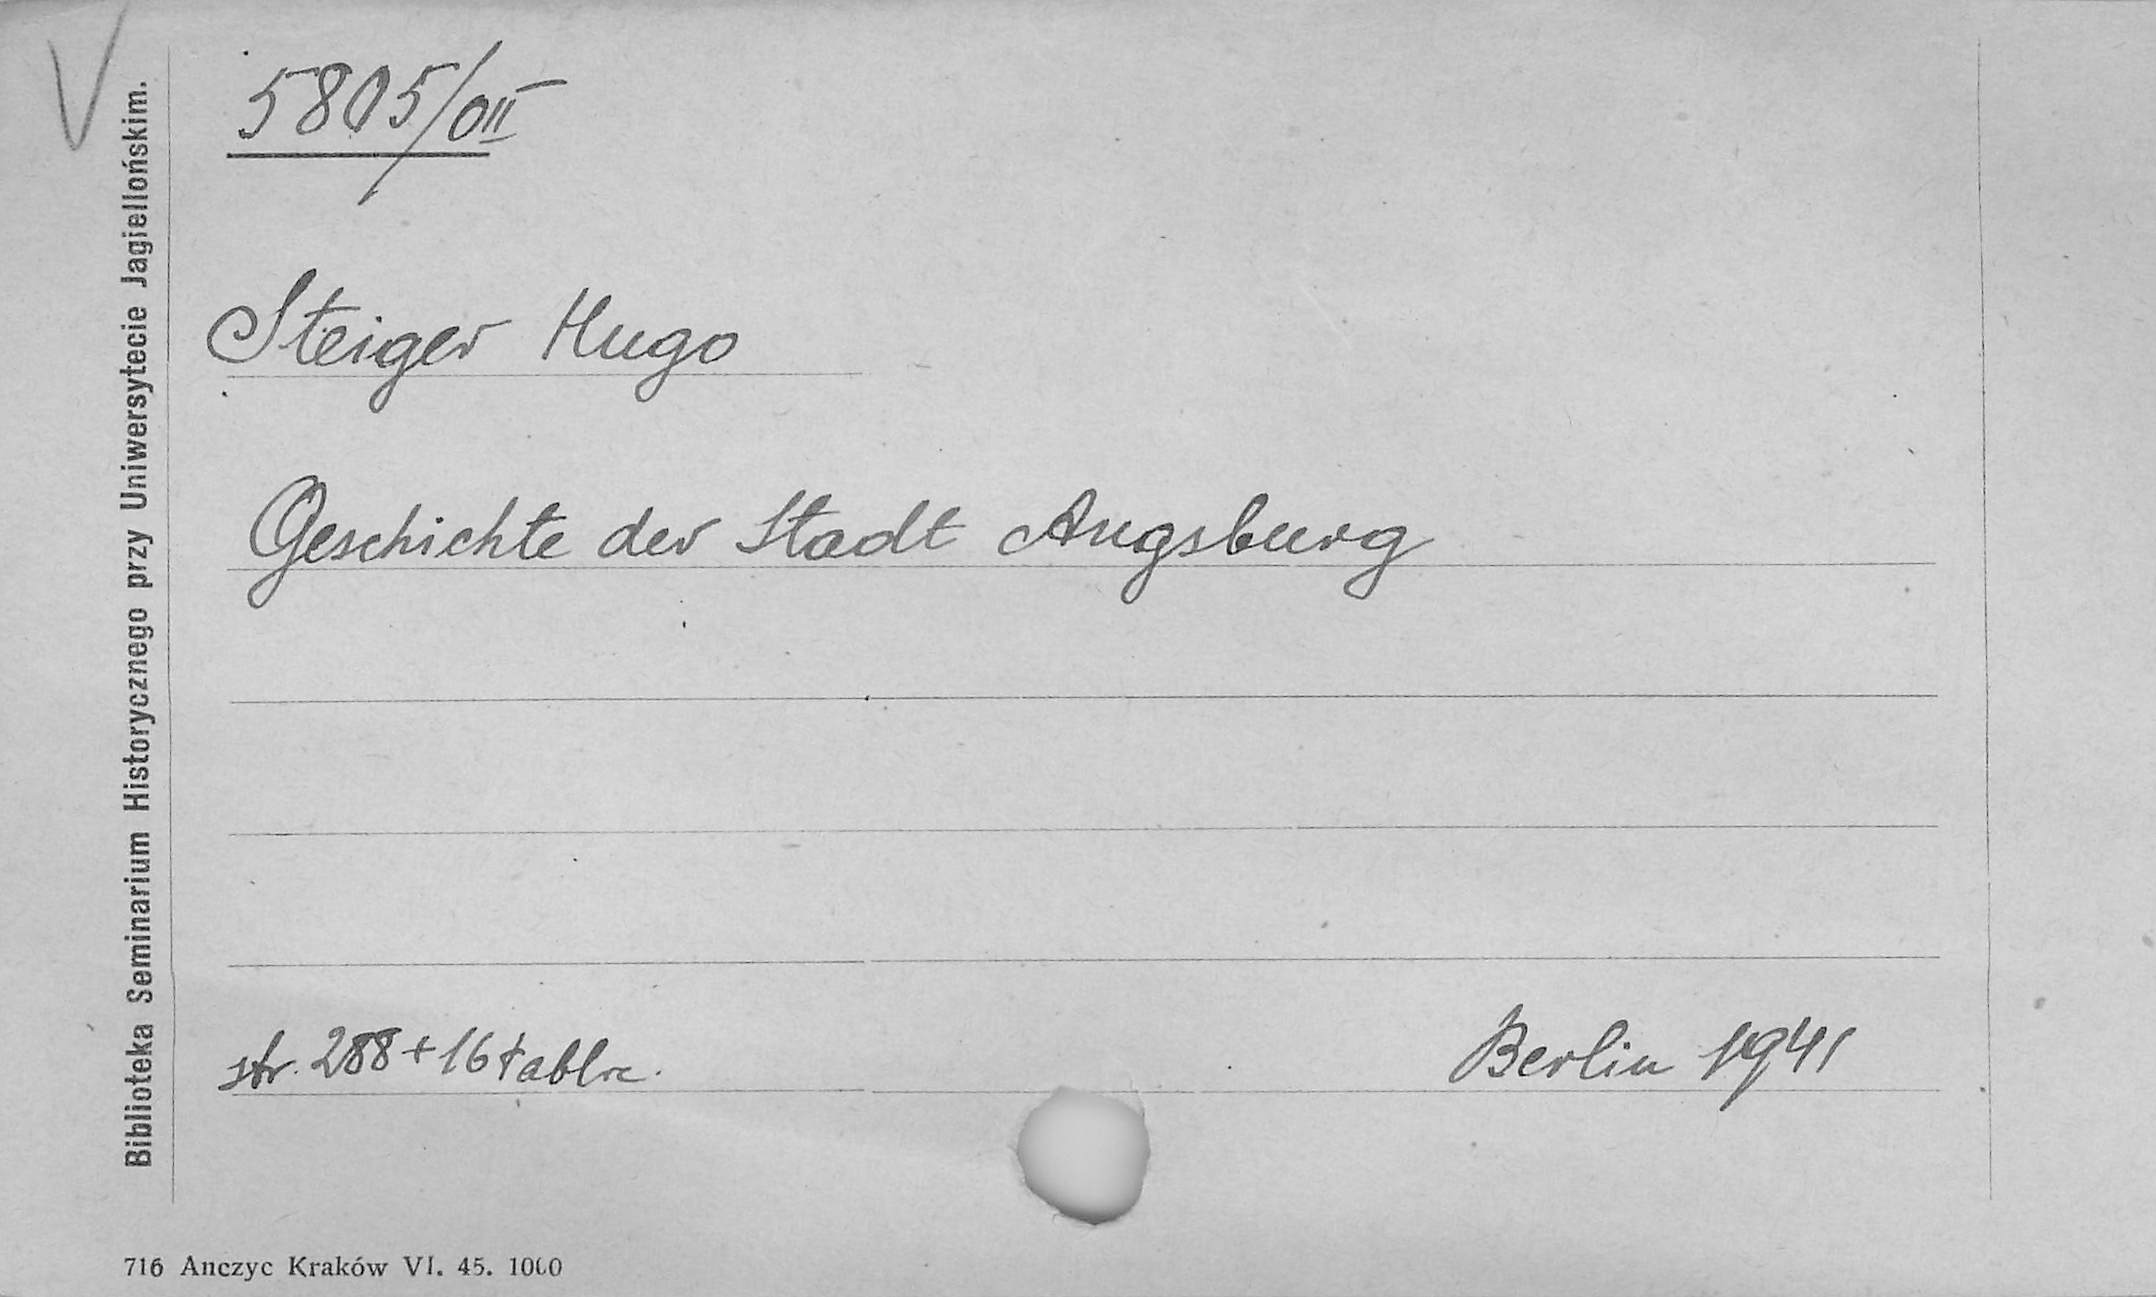 V
5805/OII
Steiger Hugo
Geschichte der Stadt Augsburg
str. 288 + 16 tablic.
Berlin 1941
Biblioteka Seminarium Historycznego przy Uniwersytecie Jagiellońskim.
716 Anczyc Kraków VI. 45. 1000